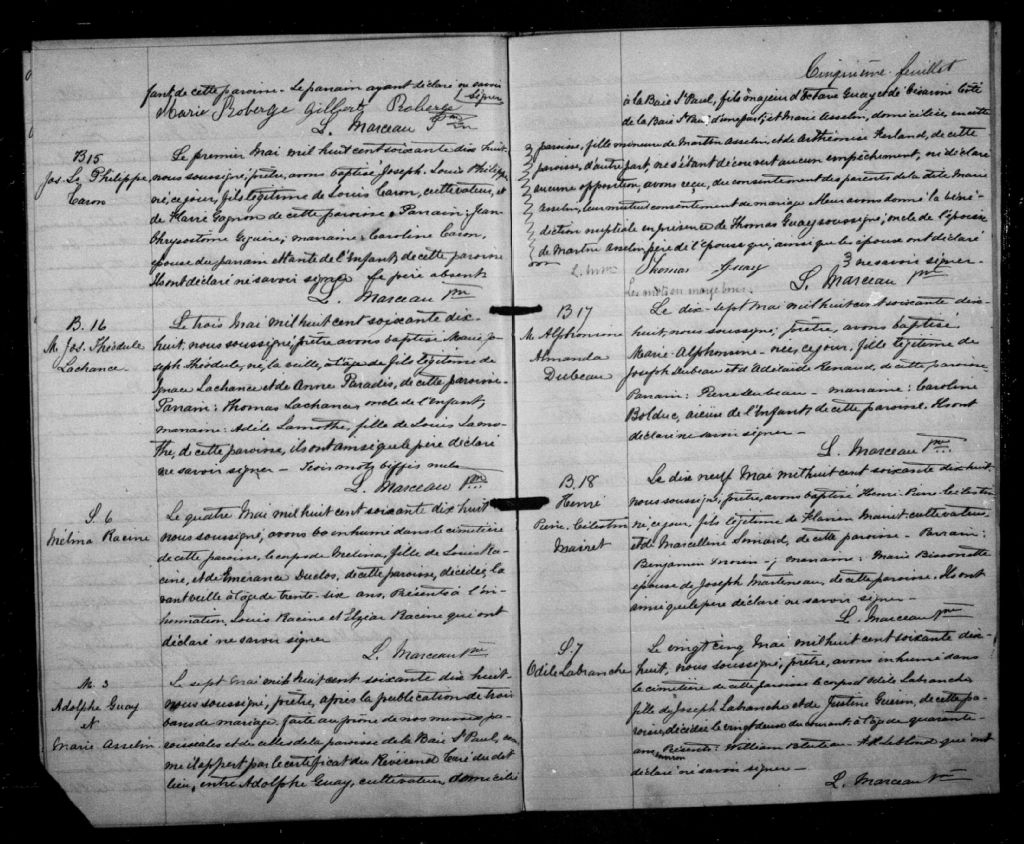 fant, de cette paroisse. Le parrain ayant déclaré ne savoir
signer
Marie Roberge Gilbert Roberge
L. Marceau Ptre
B 15
Jos. Ls Philippe
Caron
Le premier Mai mil huit cent soixante dix huit,
nous soussigné, prêtre, avons baptisé Joseph Louis Philippe
né, ce jour, fils légitime de Louis Caron, cultivateur, et
de Flavie Gagnon de cette paroisse. Parrain: Jean
Chrysostome marraine: Caroline Caron,
épouse du parrain et tante de l'Enfant, de cette paroisse
Ils ont déclaré ne savoir signer. Le père absent
L. Marceau Ptre
B. 16
M. Jos. Théodule
Lachance
Le trois Mai mil huit cent soixante dix-
huit, nous soussigné, prêtre avons baptisé Marie Jo-
seph Théodule, né, la veille, et légitime de
Ignace Lachance et de Anne Paradis, de cette paroisse.
Parrain: Thomas Lachance, oncle de l'Enfant,
marraine: Adèle Lamothe, fille de Louis Lamo-
the, de cette paroisse, ils ont ainsi que le père déclaré
ne savoir signer – Trois mots biffés nuls
L. Marceau Ptre
S. 6
Mélina Racine
Le quatre Mai mil huit cent soixante dix huit
nous soussigné, avons inhumé dans le cimetière
de cette paroisse, le corps de Mélina, fille de Louis Ra-
cine, et de Emérance Duclos, de cette paroisse, décédée, la
vant veille à l'âge de trente-six ans. Présents à l'in-
humation, Louis Racine et Elzéar Racine qui ont
déclaré ne savoir signer
L. Marceau Ptre
M. 3
Adolphe Guay
et
Marie Asselin
Le sept Mai mil huit cent soixante dix huit-
nous soussigné, prêtre, après la publication de trois
bans de mariage faite au prône de nos messes pa-
roissiales et de celles de la paroisse de la Baie St Paul, com
me il appert par le certificat du Révérend Curé du dit
lieu, entre Adolphe Guay, cultivateur domicilié
Cinquième feuillet
à la Baie St Paul, fils majeur d'Octave Guay et de Césarine Côté
de la Baie St Paul d'une part; et Marie Asselin, domiciliée, en cette
paroisse, fille mineure de Martin Asselin, et de Arthémise Ferland, de cette
paroisse, d'autre part, ne s'étant découvert aucun empêchement, ni déclaré
aucune opposition, avons reçu, du consentement des parents de la dite Marie
Asselin, leur mutuel consentement de mariage et leur avons donné la béné-
diction nuptiale en présence de Thomas Guay soussigné, oncle de l'époux
de Martin Asselin, père de l'épouse qui, ainsi que les époux ont déclaré
ne savoir signer.
Thomas Guay
L. Marceau Ptre
B 17
M. Alphonsine
Amanda
Dubeau
Le dix-sept Mai mil huit cent soixante dix-
huit, nous soussigné, prêtre, avons baptisé
Marie-Alphonsine - née, ce jour, fille légitime de
Joseph Dubeau et d'Adélaïde Renaud, de cette paroisse
Parrain: Pierre Dubeau - marraine: Caroline
Bolduc, aïeux de l'Enfant, de cette paroisse. Ils ont
déclaré ne savoir signer -
L. Marceau Ptre
B. 18
Henri
Pierre Célestin
Mairet
Le dix neuf Mai mil huit cent soixante dix huit
nous soussigné, prêtre, avons baptisé Henri-Pierre Célestin
né, ce jour, fils légitime de Flavien Mairet cultivateur
et de Marcelline Simard, de cette paroisse - Parrain:
Benjamin Morin -, marraine: Marie Bissonette
épouse de Joseph Martineau, de cette paroisse. Ils ont
ainsi que le père déclaré ne savoir signer -
L. Marceau Ptre
S. 7
Odile Labranche
Le vingt cinq Mai mil huit cent soixante dix-
huit, nous soussigné, prêtre, avons inhumé dans
le cimetière de cette paroisse le corps d'Odile Labranche
fille de Joseph Labranche et de Justine Guérin, de cette pa-
roisse, décédée le vingt deux du courant à l'âge de quarante
ans environ Présents: William Bluteau - A. R. Leblond qui ont
déclaré ne savoir signer -
L. Marceau Ptre